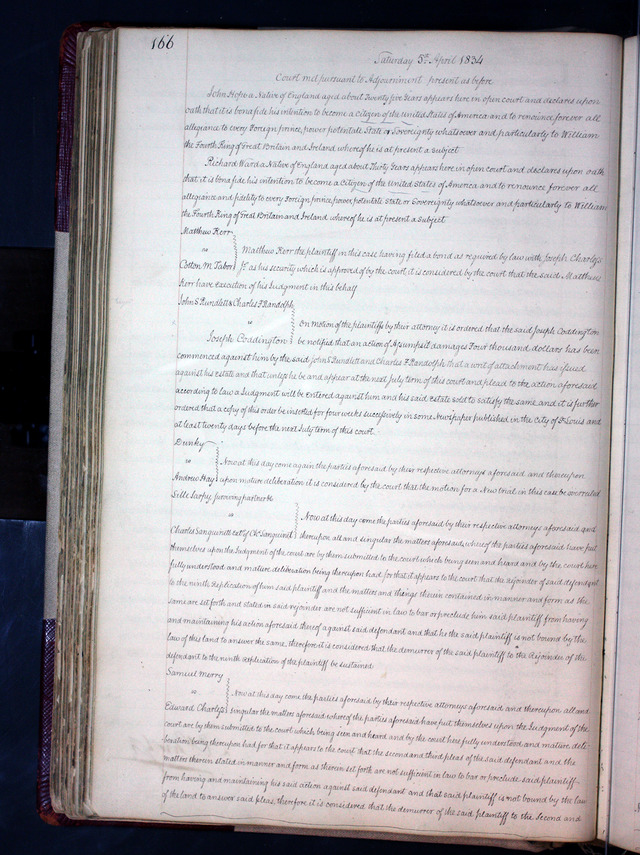 166
Saturday 5th April 1834
Court met pursuant to Adjournment present as before
John Hope a Native of England aged about Twenty five Years appears here in open court and declares upon
oath that it is bona fide his intention to become a citizen of the united States of America and to renounce forever all
allegiance to every Foreign prince, power potentate State or Sovereignty whatsoever and particularly to William
the Fourth King of Great Britain and Ireland whereof he is at present a subject
Richard Ward a Native of England aged about Thirty Years appears here in open court and declares upon oath
that it is bona fide his intention to become a Citizen of the United States of America and to renounce forever all
allegiance and fidelity to every Foreign prince, power, potentate State or Sovereignty whatsoever and particularly to William
the Fourth King of Great Britain and Ireland whereof he is at present a Subject
Matthew Kerr
vs
Matthew Kerr the plaintiff in this case having filed a bond as required by law with Joseph Charless
Cotton M. Tabor Jr. as his security which is approved of by the court, it is considered by the court that the said Matthew
Kerr have execution of his Judgment in this behalf
John S Rundlett & Charles F Randolph
vs
On motion of the plaintiffs by their attorney it is ordered that the said Joseph Coddington
Joseph Coddington be notified that an action of Assumpsit damages Four thousand dollars has been
commenced against him by the said John S Rundlett and Charles F. Randolph that a writ of attachment has issued
against his estate and that unless he be and appear at the next July term of this court and plead to the action aforesaid
according to law a Judgment will be entered against him and his said estate sold to satisfy the same and it is further
ordered that a copy of this order be inserted for four weeks successively in some Newspaper published in the City of St Louis and
at least twenty days before the next July term of this court.
Dunky
vs
Now at this day come again the parties aforesaid by their respective attorneys aforesaid and thereupon
Andrew Hays upon mature deliberation it is considered by the court that the motion for a New trial in this case be overruled
Sille Sarpy, surviving partner &c
vs
Now at this day come the parties aforesaid by their respective attorneys aforesaid and
Charles Sanguinett exr of Chs Sanguinet thereupon all and singular the matters aforesaid, whereof the parties aforesaid have put
themselves upon the Judgment of the court are by them submitted to the court which being seen and heard and by the court here
fully understood and mature deliberation being thereupon had, for that it appears to the court that the rejoinder of said defendant
to the ninth Replication of him said plaintiff and the matters and things therein contained in manner and form as the
same are set forth and stated in said rejoinder are not sufficient in law to bar or preclude him said plaintiff from having
and maintaining his action aforesaid thereof against said defendant and that he the said plaintiff is not bound by the
law of this land to answer the same, therefore it is considered that the demurrer of the said plaintiff to the Rejoinder of the
defendant to the ninth Replication of the plaintiff be sustained
Samuel Merry
vs
Now at this day come the parties aforesaid by their respective attorneys aforesaid and thereupon all and
Edward Charless singular the matters aforesaid whereof the parties aforesaid have put themselves upon the Judgment of the
court are by them submitted to the court which being seen and heard and by the court here fully understood and mature deli-
beration being thereupon had for that it appears to the court that the second and third pleas of the said defendant and the
matters therein stated in manner and form as therein set forth are not sufficient in law to bar or preclude said plaintiff
from having and maintaining his said action against said defendant and that said plaintiff is not bound by the law
of the land to answer said pleas, therefore it is considered that the demurrer of the said plaintiff to the Second and